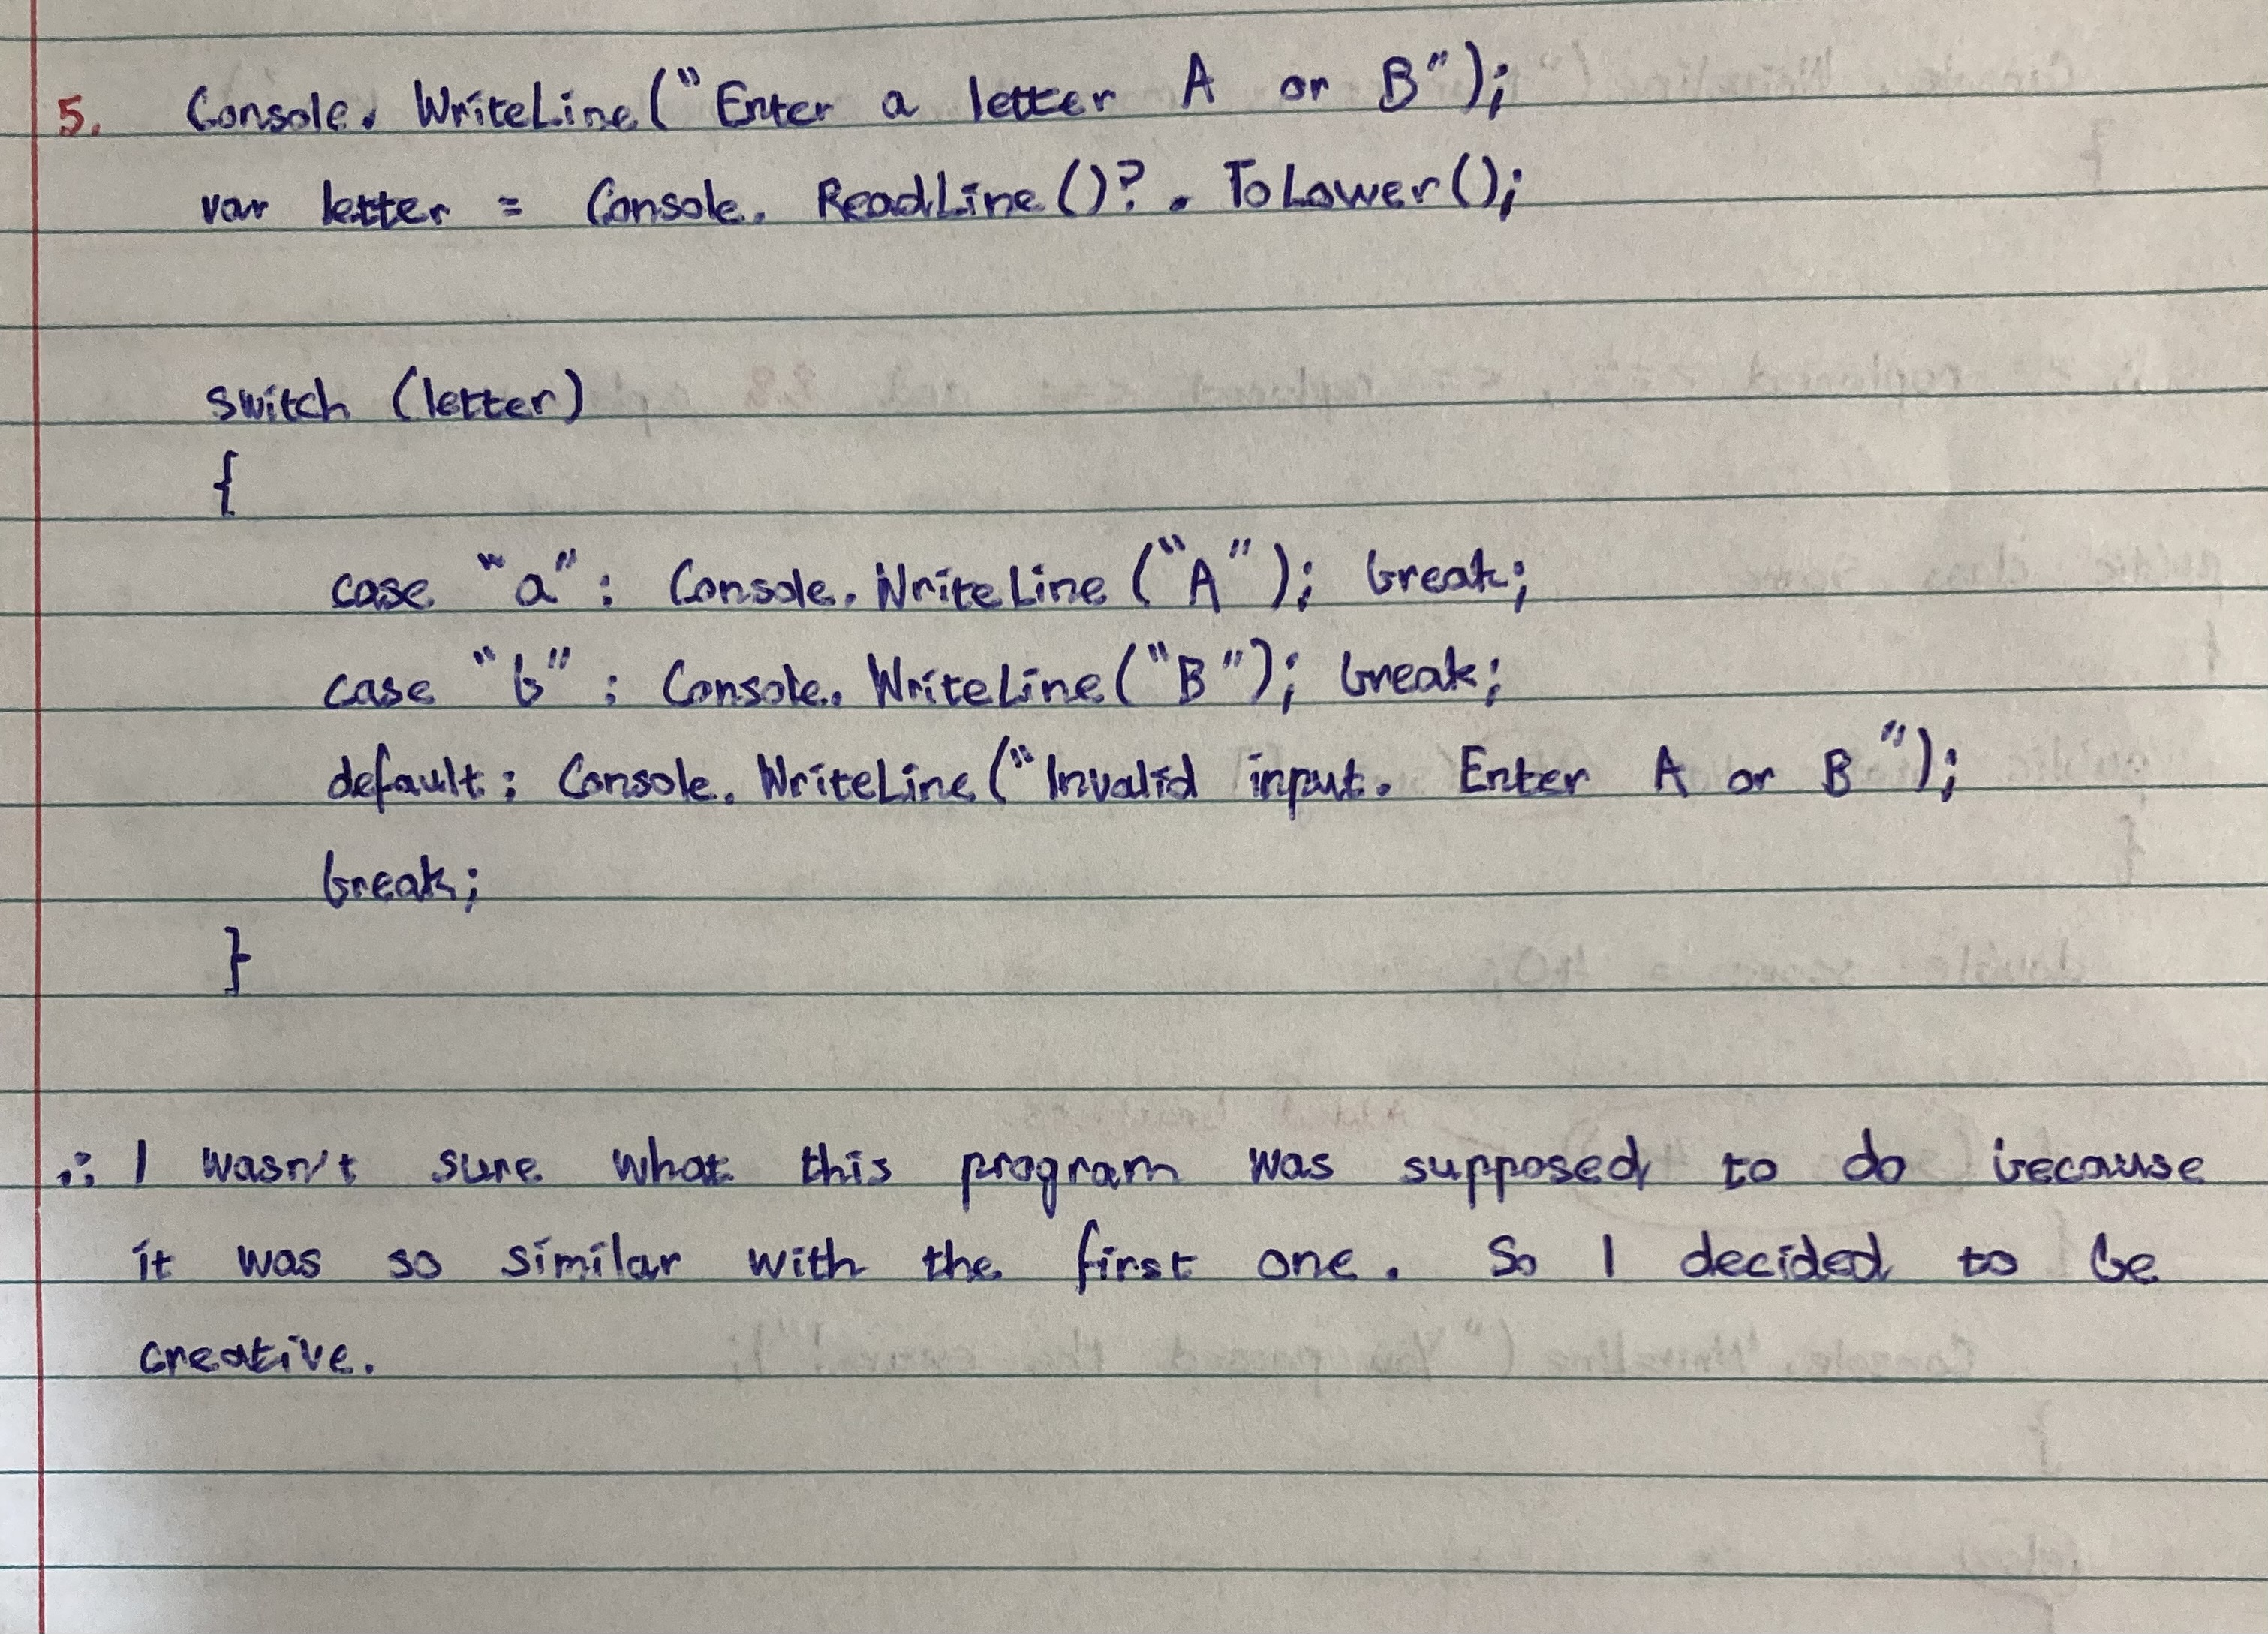 5. Console.WriteLine("Enter a letter A or B");
var letter = Console.ReadLine()?.ToLower();
switch (letter)
{
case "a": Console.WriteLine("A"); break;
case "b": Console.WriteLine("B"); break;
default: Console.WriteLine("Invalid input. Enter A or B");
break;
}
∴ I wasn't sure what this program was supposed to do because
it was so similar with the first one. So I decided to be
creative.